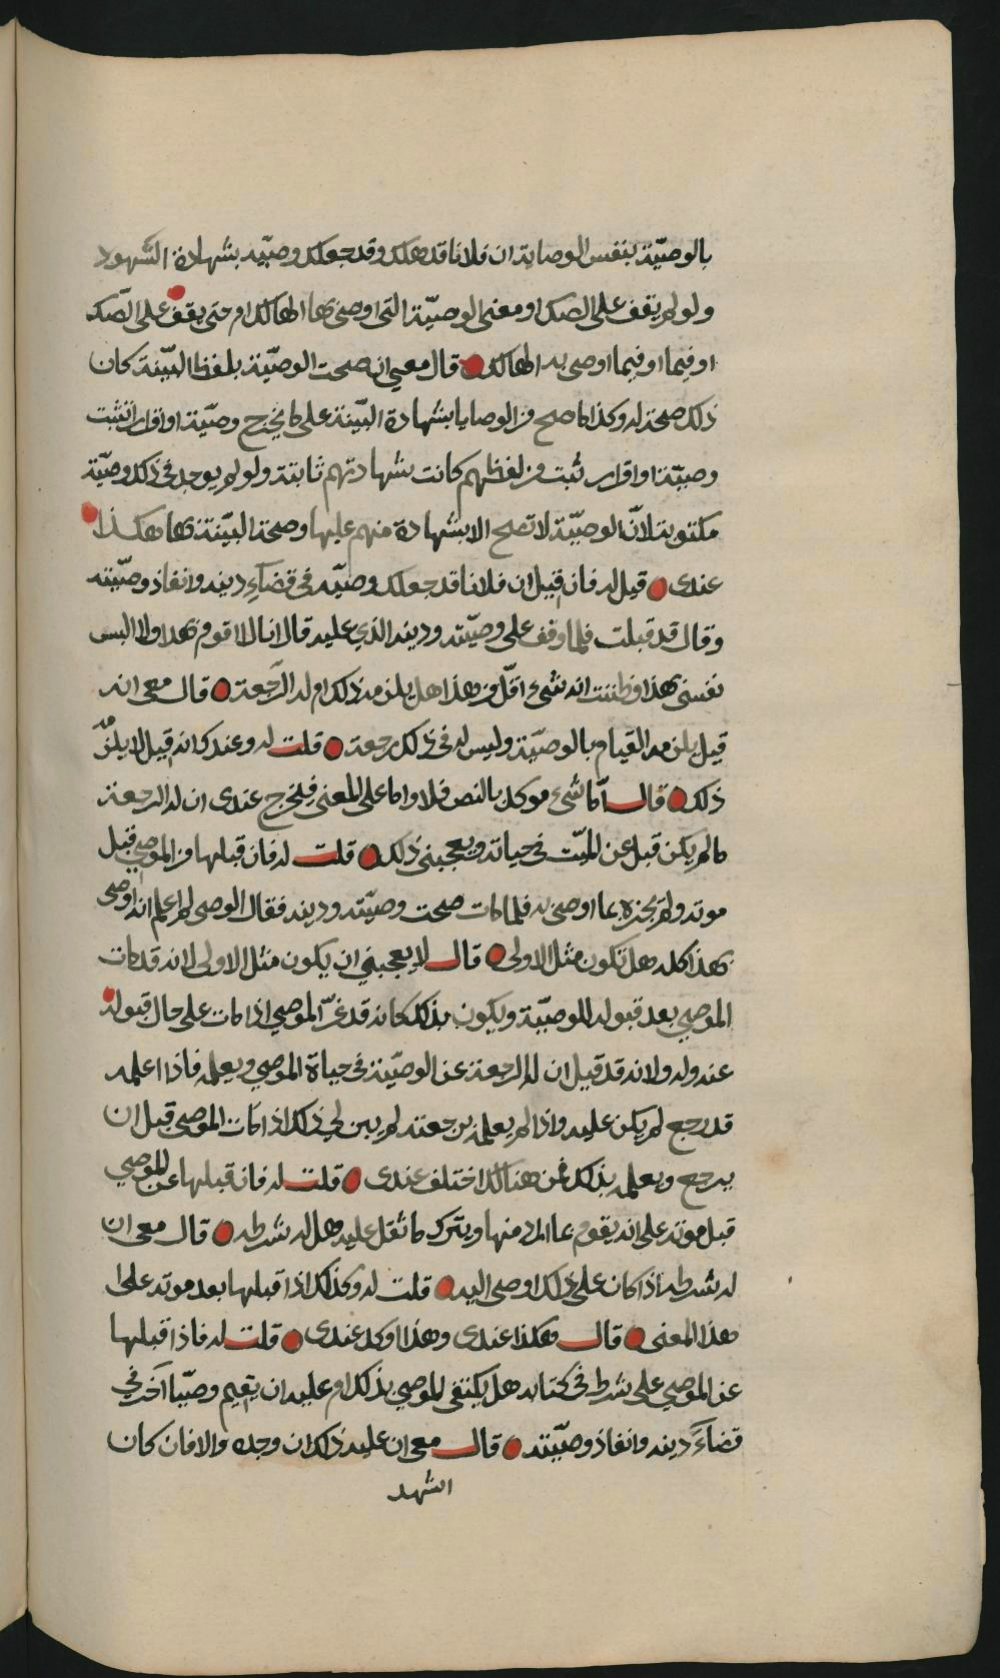 بالوصيّة بنفس الوصاية ان فلانا قد هلك وقد جعلك وصيّه بشهادة الشهود
ولو لم يقف على الصك او معنى الوصيّة التي اوصى بها الهالك ام حتى يقف على الصّك
او فيما او فيما اوصى به الهالك قال معي ان صحت الوصيّة بلفظ البيّنة كان
ذلك صحة له وكذا ما صح من الوصايا بشهادة البيّنة على ما يخرج وصيّة او اقرار أتثبت
وصيّة او اقرار ثبت من لفظهم كانت شهادتهم ثابتة ولو لم يوجد في ذلك وصيّة
مكتوبة لانّ الوصيّة لا تصح الا بشهادة منهم عليها وصحة البيّنة بها هكذا
عندي قيل له فان قيل ان فلانا قد جعلك وصيّه في قضاء دينه وانفاذ وصيّته
وقال قد قبلت فلما وقف على وصيّته ودينه الذي عليه قال انا لا اقوم بهذا ولا البس
نفسي بهذا وظننت انه شيء اقلّ من هذا هل يلزمه ذلك ام له الرّجعة قال معي انه
قيل يلزمه القيام بالوصيّة وليس له في ذلك رجعة قلت له وعندك انه قيل لا يلزمه
ذلك قال أما شيء موكد بالنص فلا واما على المعنى فيخرج عندي ان له الرجعة
ما لم يكن قبل عن الميّت في حياته ويعجبني ذلك قلت له فان قبلها من الموصي قبل
موته ولم يخبره بما اوصى به فلما مات صحت وصيّته ودينه فقال الوصي لم اعلم انه اوصى
بهذا كله هل تكون مثل الاولى قال لا يعجبني ان يكون مثل الاولى لانه قد مات
الموصي بعد قبوله للوصيّة ويكون بذلك كانه قد غرّ الموصي اذا مات على حال قبوله
عنه وله ولانه قد قيل ان له الرجعة عن الوصيّة في حياة الموصي ويعلمه فاذا اعلمه
قد رجع لم يكن عليه واذا لم يعلمه برجعته لم يبن لي ذلك اذا مات الموصي قبل ان
يرجع ويعلمه بذلك فمن هنالك اختلف عندي قلت له فان قبلها عن الموصي
قبل موته على انه يقوم بما اراد منها ويترك ما ثقل عليه هل له شرطه قال معي ان
له شرطه اذا كان على ذلك اوصى اليه قلت له وكذلك اذا قبلها بعد موته على
هذا المعنى قال هكذا عندي وهذا اوكد عندي قلت له فاذا قبلها
عن الموصي على شرط في كتابه هل يكتفي الموصي بذلك ام عليه ان يقيم وصيّا آخر في
قضاء دينه وانفاذ وصيّته قال معي ان عليه ذلك ان وجده والا فان كان
اشهد